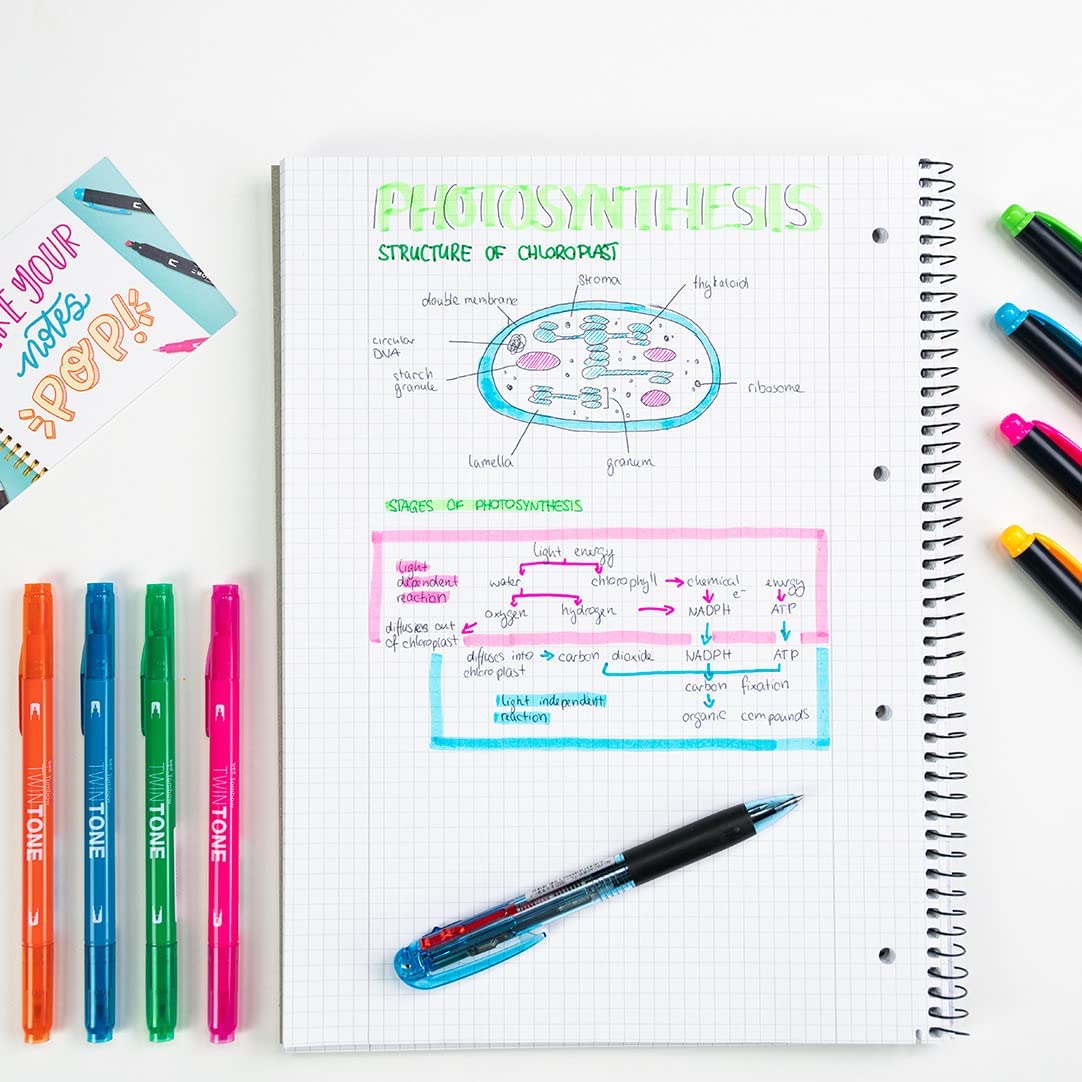 KE YOUR
notes
POP!
PHOTOSYNTHESIS
STRUCTURE OF CHLOROPLAST
stroma
thykaloid
double membrane
circular
DNA
starch
granule
ribosome
lamella
granum
STAGES OF PHOTOSYNTHESIS
light energy
light
dependent
reaction
water chlorophyll chemical energy
e-
oxygen hydrogen NADPH ATP
diffuses out
of chloroplast
diffuses into carbon dioxide NADPH ATP
chloroplast
carbon fixation
light independent
reaction
organic compounds
Tombow
TWINTONE
Tombow
TWINTONE
Tombow
TWINTONE
Tombow
TWINTONE